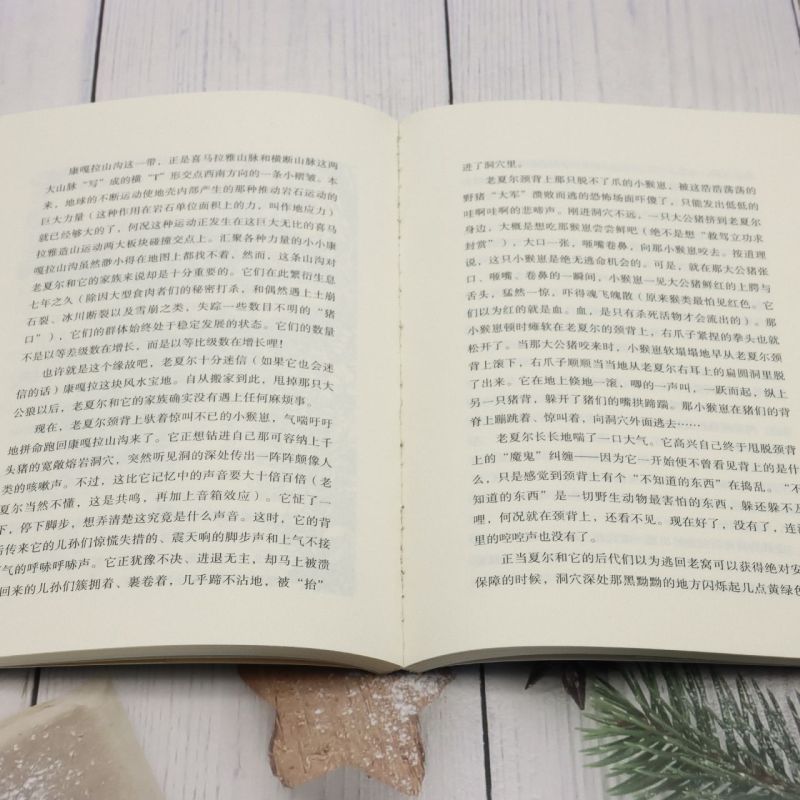 康嘎拉山沟这一带，正是喜马拉雅山脉和横断山脉这两
大山脉“写”成的横“T”形交点西南方向的一条小褶皱。本
来，地球的不断运动使地壳内部产生的那种推动岩石运动的
巨大力量（这种作用在岩石单位面积上的力，叫作地应力）
就已经够大的了，何况这种运动正发生在这巨大无比的喜马
拉雅造山运动两大板块碰撞交点上。汇聚各种力量的小小康
嘎拉山沟虽然渺小得在地图上都找不着，然而，这条山沟对
老夏尔和它的家族来说却是十分重要的。它们在此繁衍生息
七年之久（除因大型食肉者们的秘密打杀，和偶然遇上土崩
石裂、冰川断裂以及雪崩之类，失踪一些数目不明的“猪
口”），它们的群体始终处于稳定发展的状态。它们的数量
不是以等差级数在增长，而是以等比级数在增长哩！
也许就是这个缘故吧，老夏尔十分迷信（如果它也会迷
信的话）康嘎拉这块风水宝地。自从搬家到此，甩掉那只大
公狼以后，老夏尔和它的家族确实没有遇上任何麻烦事。
现在，老夏尔颈背上驮着惊叫不已的小猴崽，气喘吁吁
地拼命跑回康嘎拉山沟来了。它正想钻进自己那可容纳上千
头猪的宽敞熔岩洞穴，突然听见洞的深处传出一阵阵颇像人
类的咳嗽声。不过，这比它记忆中的声音要大十倍百倍（老
夏尔当然不懂，这是共鸣，再加上音箱效应）。它怔了一
下，停下脚步，想弄清楚这究竟是什么声音。这时，它的背
后传来它的儿孙们惊慌失措的、震天响的脚步声和上气不接
下气的呼哧呼哧声。它正犹豫不决、进退无主，却马上被溃
回来的儿孙们簇拥着、裹卷着，几乎蹄不沾地，被“抬”
进了洞穴里。
老夏尔颈背上那只脱不了爪的小猴崽，被这浩浩荡荡的
野猪“大军”溃败而逃的恐怖场面吓傻了，只能发出低低的
哇啊哇啊的悲啼声。刚进洞穴不远，一只大公猪挤到老夏尔
身边，大概是想吃那猴崽尝尝鲜吧（绝不是想“救驾立功求
封赏”），大口一张，咂嘴卷鼻，向那小猴崽咬去。按道理
说，这只小猴崽是绝无逃命机会的。可是，就在那大公猪张
口、咂嘴、卷鼻的一瞬间，小猴崽一见大公猪鲜红的上腭与
舌头，猛然一惊，吓得魂飞魄散（原来猴类最怕见红色。它
们以为红的就是血。血，是只有杀死活物才会流出的）。那
小猴崽顿时瘫软在老夏尔的颈背上，右爪子紧捏的拳头也就
松开了。当那大公猪咬来时，小猴崽软塌塌地早从老夏尔颈
背上滚下，右爪子顺顺当当地从老夏尔右耳上的扁圆洞里脱
了出来。它在地上倏地一滚，唧的一声叫，一跃而起，纵上
另一只猪背，躲开了猪们的嘴拱蹄踹。那小猴崽在猪们的背
脊上蹦跳着、惊叫着，向洞穴外面逃去……
老夏尔长长地喘了一口大气。它高兴自己终于甩脱颈背
上的“魔鬼”纠缠——因为它一开始便不曾看见背上的是什
么，只是感觉到颈背上有个“不知道的东西”在捣乱。“不
知道的东西”是一切野生动物最害怕的东西，躲还躲不及
哩，何况就在颈背上，还看不见。现在好了，没有了，连洞
里的啌啌声也没有了。
正当夏尔和它的后代们以为逃回老窝可以获得绝对安
保障的时候，洞穴深处那黑黝黝的地方闪烁起几点黄绿色